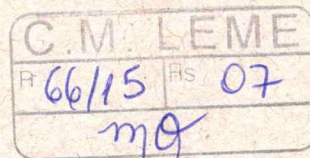 C.M. LEME
P 66/15 Fls 07